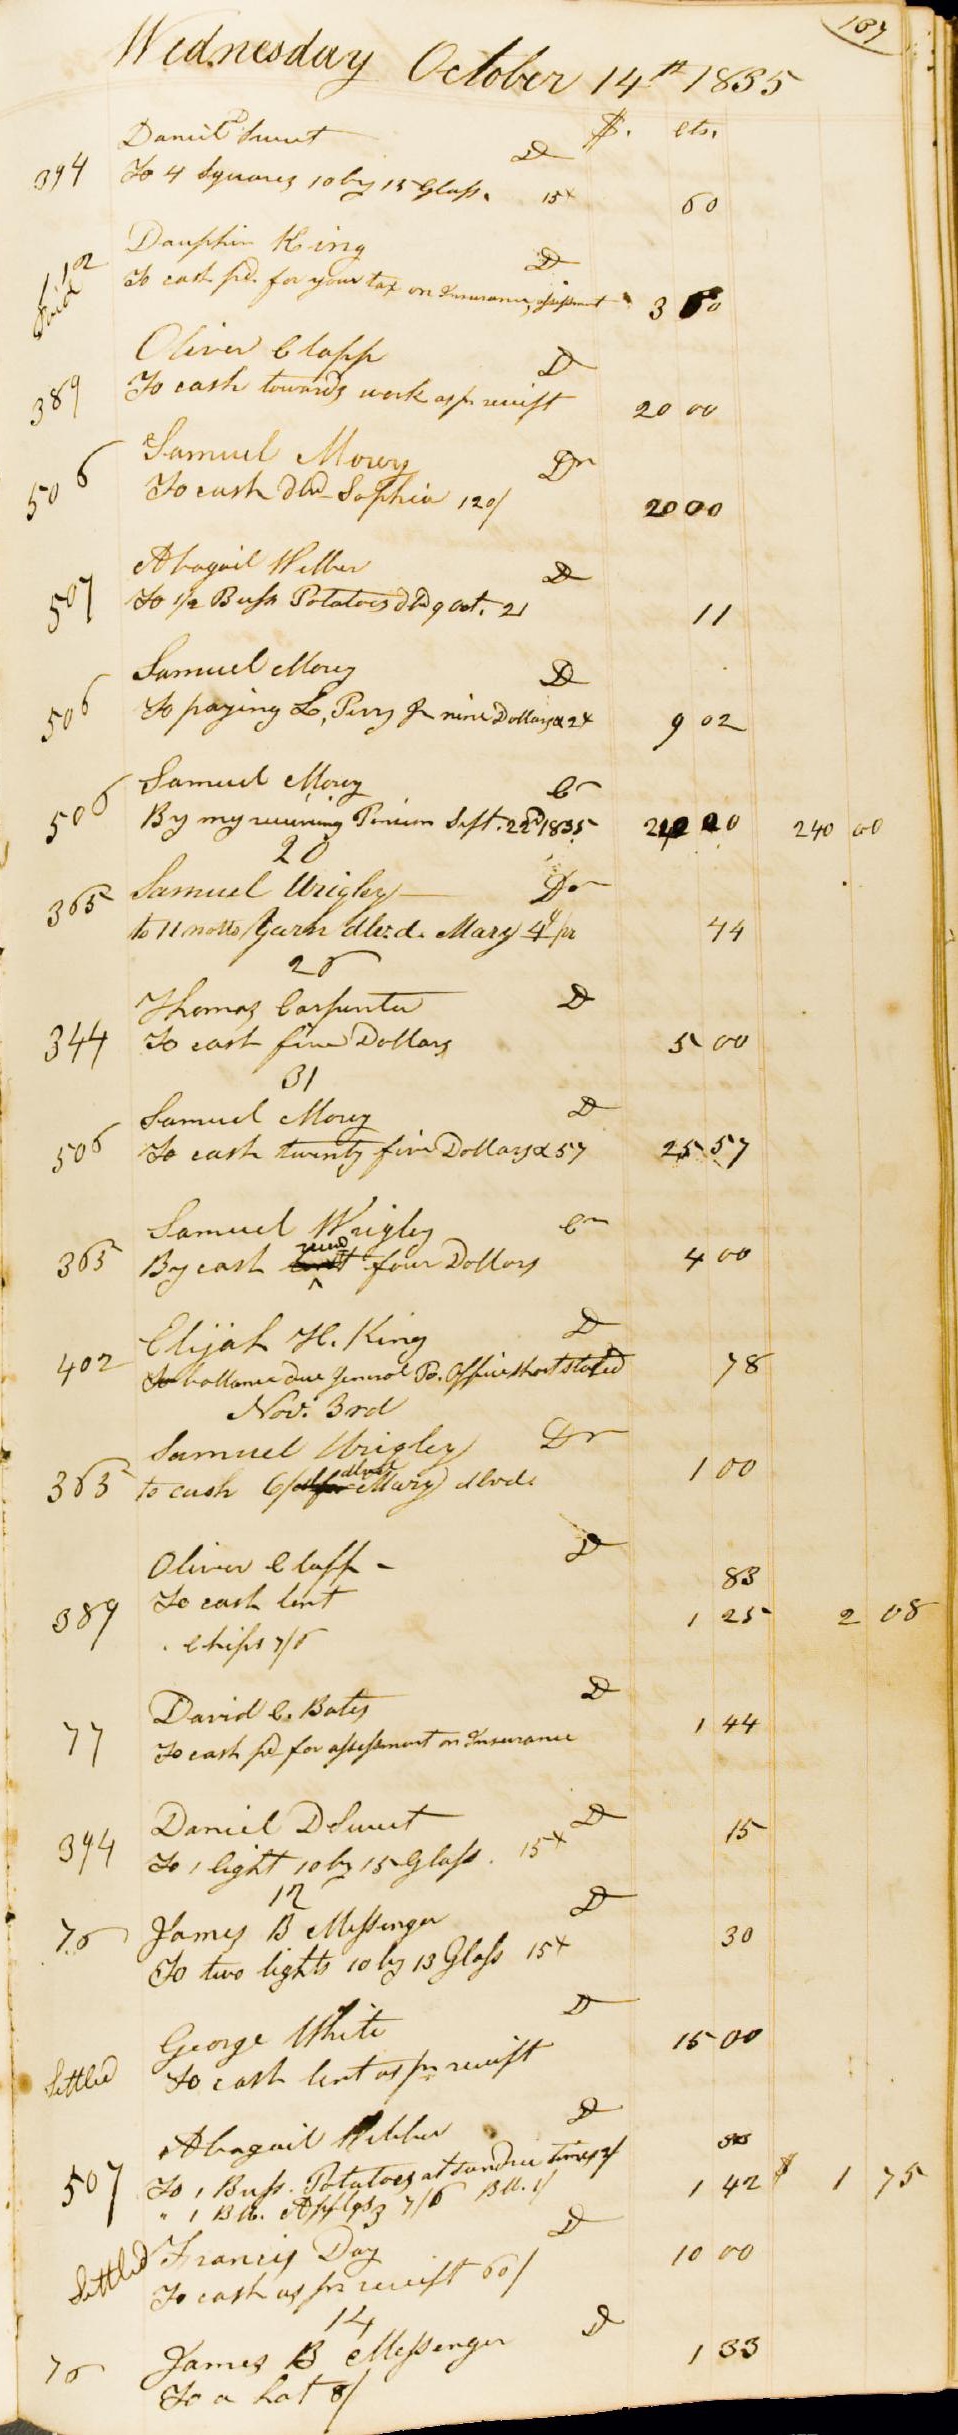 187
Wednesday October 14th 1835
$. cts.
Daniel D Sweet D
394 To 4 Squares 10 by 15 Glass. 15x 60
Dauphin King D
112 Paid To cash pd. for your tax on Insurance, assessment 3 50
Oliver Clapp D
389 To cash towards work as pr receipt 20 00
Samuel Mowry Dr
506 To cash dld Sophia 120/ 20 00
Abagail Wilber D
507 To 1/2 Bush Potatoes dld 9 Oct. 21 11
Samuel Mowry D
506 To paying L, Perry Jr nine Dollars & 2x 9 02
Samuel Mowry Cr
506 By my receiving Pension Sept. 22d 1835 240 00
20
365 Samuel Wrigley Dr
to 11 notts Yarn dlv.d. Mary 4x pr 44
26
Thomas Carpenter D
344 To cash five Dollars 5 00
31
Samuel Mowry D
506 To cash twenty five Dollars & 57 25 57
Samuel Wrigley Cr
recd
365 By cash four Dollars 4 00
Elijah H. King D
402 To ballance due General Po. Office short stated 78
Nov. 3rd
Samuel Wrigley Dr
dlvd
365 to cash 6/ Mary dlvd. 1 00
Oliver Clapp - D
To cash lent 83
389 . Chips 7/6 1 25 2 08
David C. Bates D
77 To cash pd for assessment on Insurance 1 44
Daniel D Sweet D
394 To 1 light 10 by 15 Glass. 15x 15
12
76 James B Messenger D
To two lights 10 by 13 Glass 15x 30
George White D
Settled To cash lent as pr receipt 15 00
Abagail Wilber D
507 To 1 Bush. Potatoes at sundrie times 2/ 33
" 1 Bll. Apples 7/6 Bll. 1/ 1 42 $ 1 75
Settled Francis Day D
To cash as pr receipt 60/ 10 00
14
76 James B Messenger D
To a hat 8/ 1 33